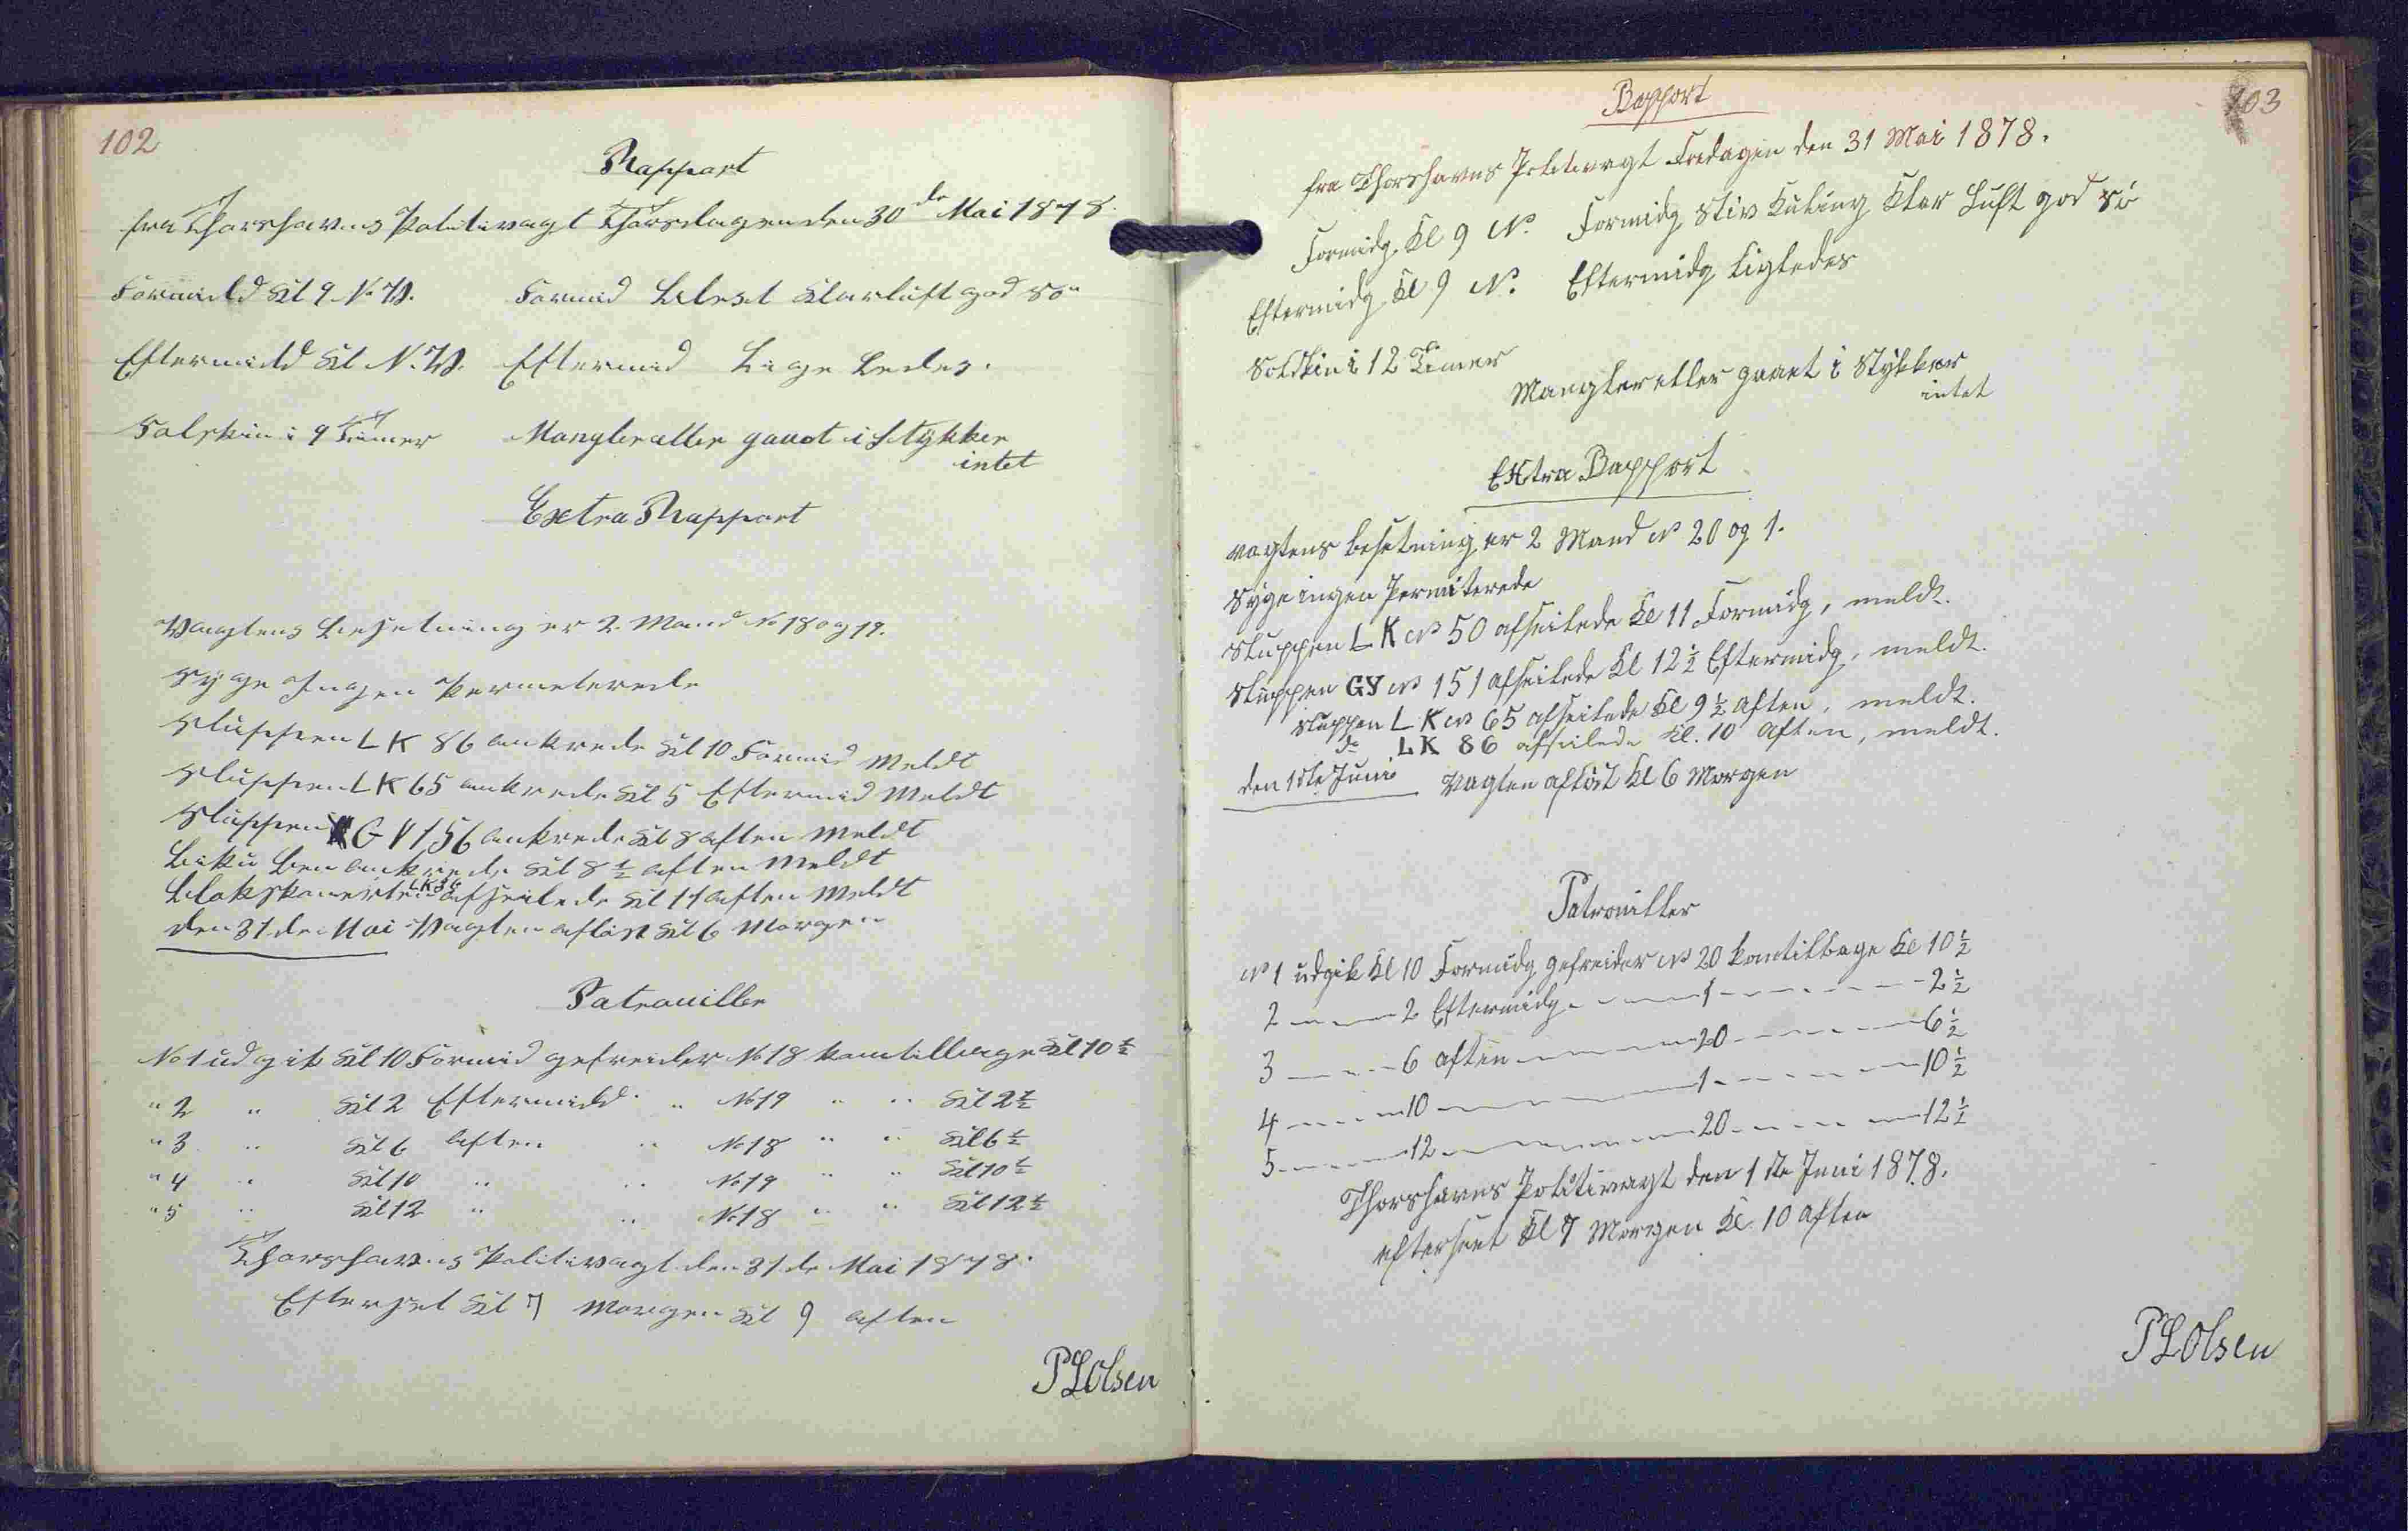 102
Rapport
fra Thorshavns Politivagt Thorsdagen den 30de Mai 1878.
Formidd Kl 9 N.V. Formid Blest Klarluft god Sö
Eftermidd Kl N.V. Eftermid Lige Ledes.
Solskin i 9 Timer Mangler eller gaaet i Stykker
intet
Extra Rapport
Vagtens Besetning er 2 Mand No 18 og 19.
Syge Ingen Permeterede
Sluppen LK 86 ankrede Kl 10 Formid Meldt
Sluppen LK 65 ankrede Kl 5 Eftermid Meldt
Sluppen GY 156 ankrede Kl 8 aften Meldt
ankrede Kl 8 1/2 aften Meldt
LK 36
afseilede Kl 11 aften Meldt
den 31de Mai Vagten aflöst Kl 6 Morgen
Patrouiller
No 1 udgik Kl 10 Formid gefreider No 18 kom tilbage Kl 10 1/2
" 2 " Kl 2 Eftermidd " No 19 " " Kl 2 1/2
" 3 " Kl 6 aften " No 18 " " Kl 6 1/2
" 4 " Kl 10 " " No 19 " " Kl 10 1/2
" 5 " Kl 12 " " No 18 " " Kl 12 1/2
Thorshavns Politivagt den 31de Mai 1878.
Efterset Kl 7 Morgen Kl 9 aften
PLOlsen
103
Rapport
fra Thorshavns Politivagt Fredagen den 31 Mai 1878.
Formidg. Kl 9 N. Formidg Stiv Kuling Klar Luft god Sö
Eftermidg Kl 9 N. Eftermidg Ligledes
Solskin i 12 Timer
Mangler eller gaaet i Stykker
intet
Extra Rapport
vagtens besetning er 2 Mand No 20 og 1.
Syge ingen Permiterede
Sluppen LK No 50 afseilede Kl 11 Formidg, meldt.
Sluppen GY No 151 afseilede Kl 12 1/2 Eftermidg, meldt.
Sluppen LK No 65 afseilede Kl 9 1/2 Aften, meldt.
do LK 86 afseilede Kl. 10 Aften, meldt.
den 1ste Juni Vagten aflöst Kl 6 Morgen
Patrouiller
No 1 udgik Kl 10 Formidg gefreider No 20 kom tilbage Kl 10 1/2
2 - - - 2 Eftermidg - - - 1 - - - 2 1/2
3 - - - 6 aften - - - 20 - - - 6 1/2
4 - - - 10 - - - 1 - - - 10 1/2
5 - - - 12 - - - 20 - - - 12 1/2
Thorshavns Politivagt den 1ste Juni 1878.
efterseet Kl 7 Morgen Kl. 10 Aften
PLOlsen